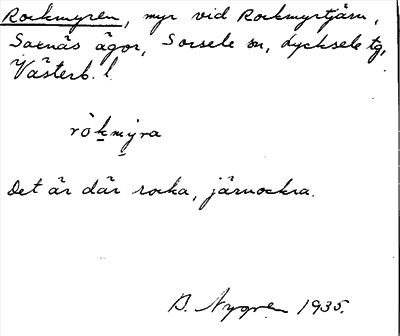 Rockmyren, myr vid Rockmyrtjärn,
Saxnäs ägor, Sorsele sn, Lycksele tg,
Västerb. l.
ròkmýra
Det är där rocka, järnockra.
B. Nygren 1935.